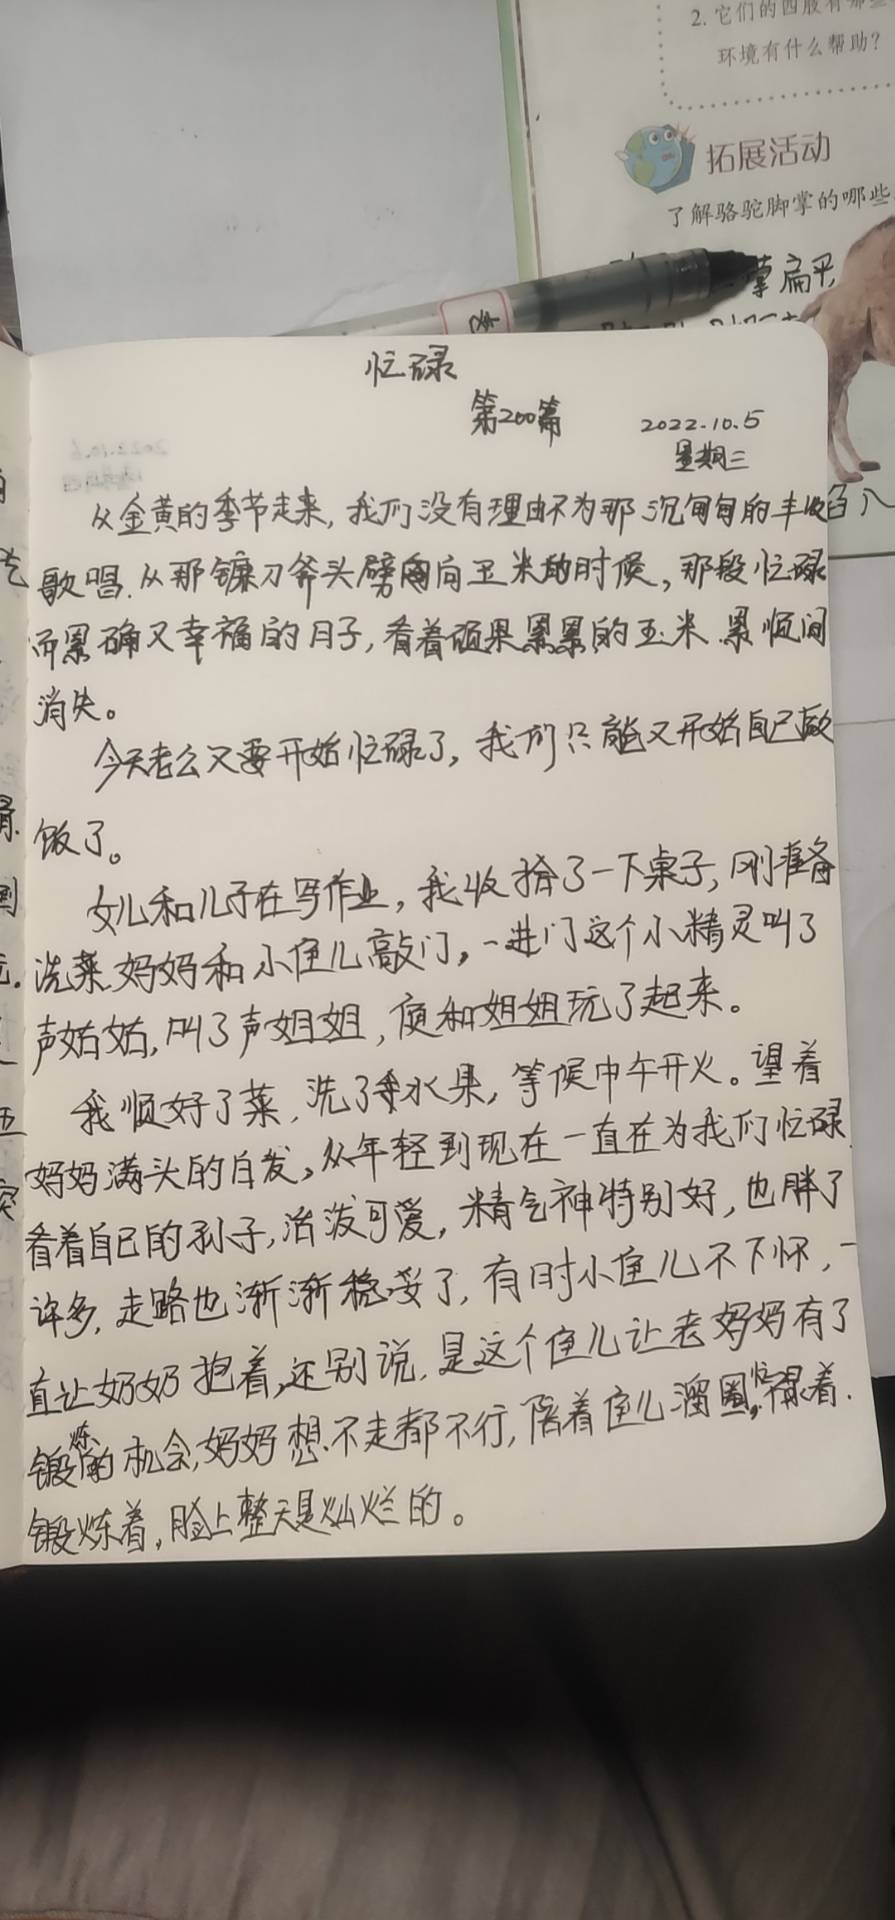 2. 它们的四肢有那些
环境有什么帮助？
拓展活动
了解骆驼脚掌的哪些
掌扁平,
忙碌
第200篇
2022.10.5
星期三
从金黄的季节走来,我们没有理由不为那沉甸甸的丰收
歌唱.从那镰刀斧头劈向玉米的时候,那段忙碌
而累确又幸福的月子,看着硕果累累的玉米.累顺间
消失。
今天老么又要开始忙碌了,我们只能又开始自己做
饭了。
女儿和儿子在写作业,我收拾了一下桌子,刚准备
洗菜.妈妈和小侄儿敲门,一进门这个小精灵叫了
声姑姑,叫了声姐姐,便和姐姐玩了起来。
我顺好了菜,洗了水果,等候中午开火。望着
妈妈满头的白发,从年轻到现在一直在为我们忙碌.
看着自己的孙子,活泼可爱,精气神特别好,也胖了
许多,走路也渐渐稳妥了,有时小侄儿不下怀,一
直让奶奶抱着,还别说.是这个侄儿让老妈妈有了
锻炼的机会,妈妈想不走都不行,陪着侄儿溜圈,忙碌着.
锻炼着,脸上整天是灿烂的。